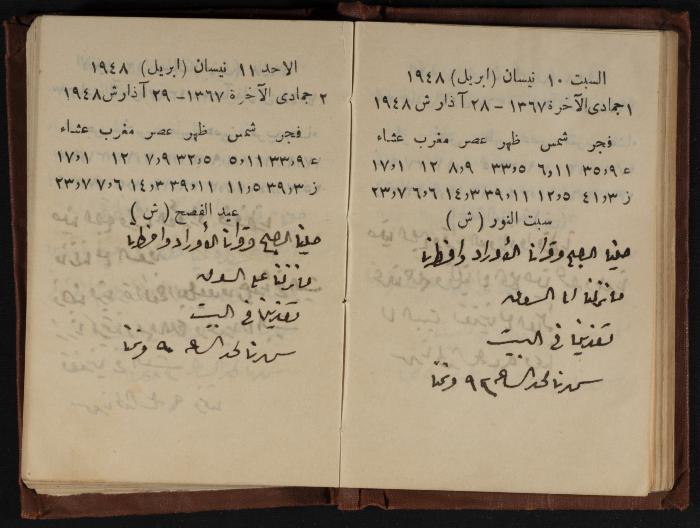 السبت ١٠ نيسان (ابريل) ١٩٤٨
١ جمادى الآخرة ١٣٦٧ - ٢٨ آذار ش ١٩٤٨
فجر شمس ظهر عصر مغرب عشاء
ع ٩٫٣٥ ١١٫٦ ٥٫٣٣ ٩٫٨ ١٢ ١٫١٧
ز ٣٫٤١ ٥٫١٢ ١١٫٣٩ ٣٫١٤ ٦٫٦ ٧٫٢٣
سبت النور (ش)
صلينا الصبح وقرأنا الأوراد وافطرنا
ما نزلنا لـا السوق
تغدينا في البيت
سهرنا لحد الساعة ٩٣ ونمنا
الاحد ١١ نيسان (ابريل) ١٩٤٨
٢ جمادى الآخرة ١٣٦٧ - ٢٩ آذار ش ١٩٤٨
فجر شمس ظهر عصر مغرب عشاء
ع ٩٫٣٣ ١١٫٥ ٥٫٣٢ ٩٫٧ ١٢ ١٫١٧
ز ٣٫٣٩ ٥٫١١ ١١٫٣٩ ٣٫١٤ ٦٫٧ ٧٫٢٣
عيد الفصح (ش)
صلينا الصبح وقرأنا الأوراد وافطرنا
ما نزلنا على السوق
تغدينا في البيت
سهرنا لحد الساعة ٩ ونمنا